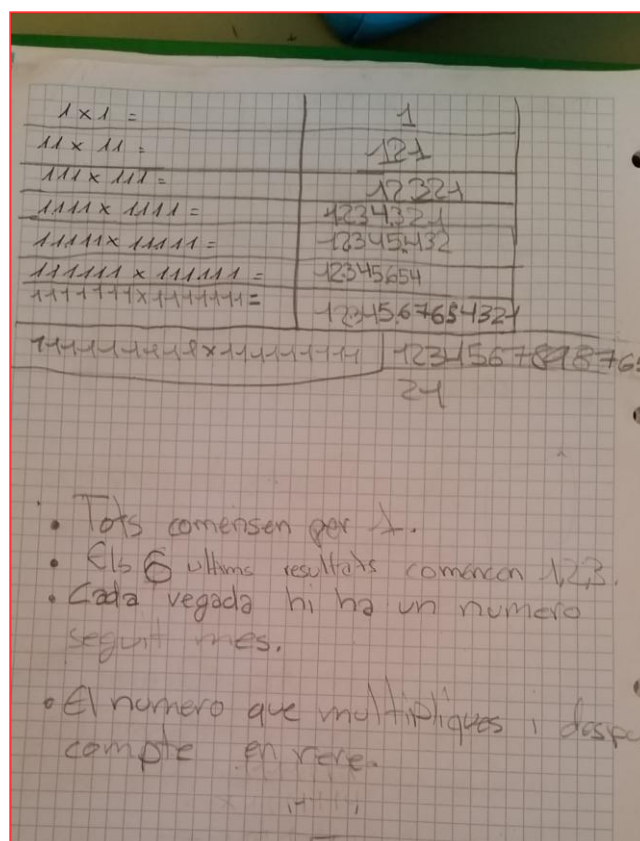 1 x 1 = 1
11 x 11 = 121
111 x 111 = 12321
1111 x 1111 = 1234321
11111 x 11111 = 12345432
111111 x 111111 = 12345654
1111111 x 1111111 = 1234567654321
111111111 x 111111111 1234567898765
21
• Tots comensen per 1.
• Els 6 ultims resultats comencen 1,2,3.
• Cada vegada hi ha un numero
seguit mes.
• El numero que multipliques i despu
compte en rere.